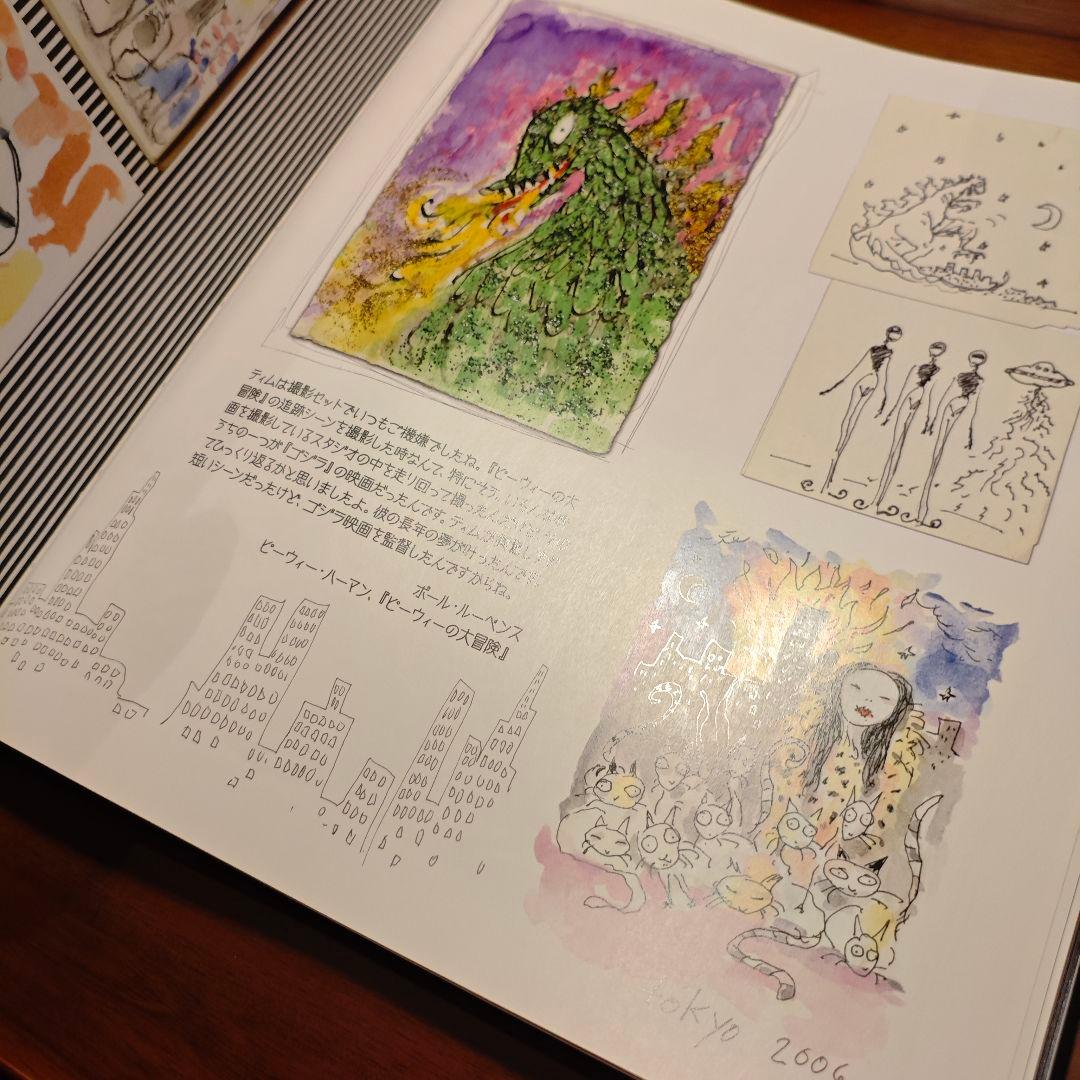 ティムは撮影セットでいつもご機嫌でしたね。『ピーウィーの大
冒険』の追跡シーンを撮影した時なんて、特にそう。いろんな映
画を撮影しているスタジオの中を走り回って撮ったんだけど、その
うちの一つが『ゴジラ』の映画だったんです。ティムが興奮しすぎ
てひっくり返るかと思いましたよ。彼の長年の夢が叶ったんです。
短いシーンだったけど、ゴジラ映画を監督したんですからね。
ポール・ルーベンス
ピーウィー・ハーマン、『ピーウィーの大冒険』
tokyo 2006